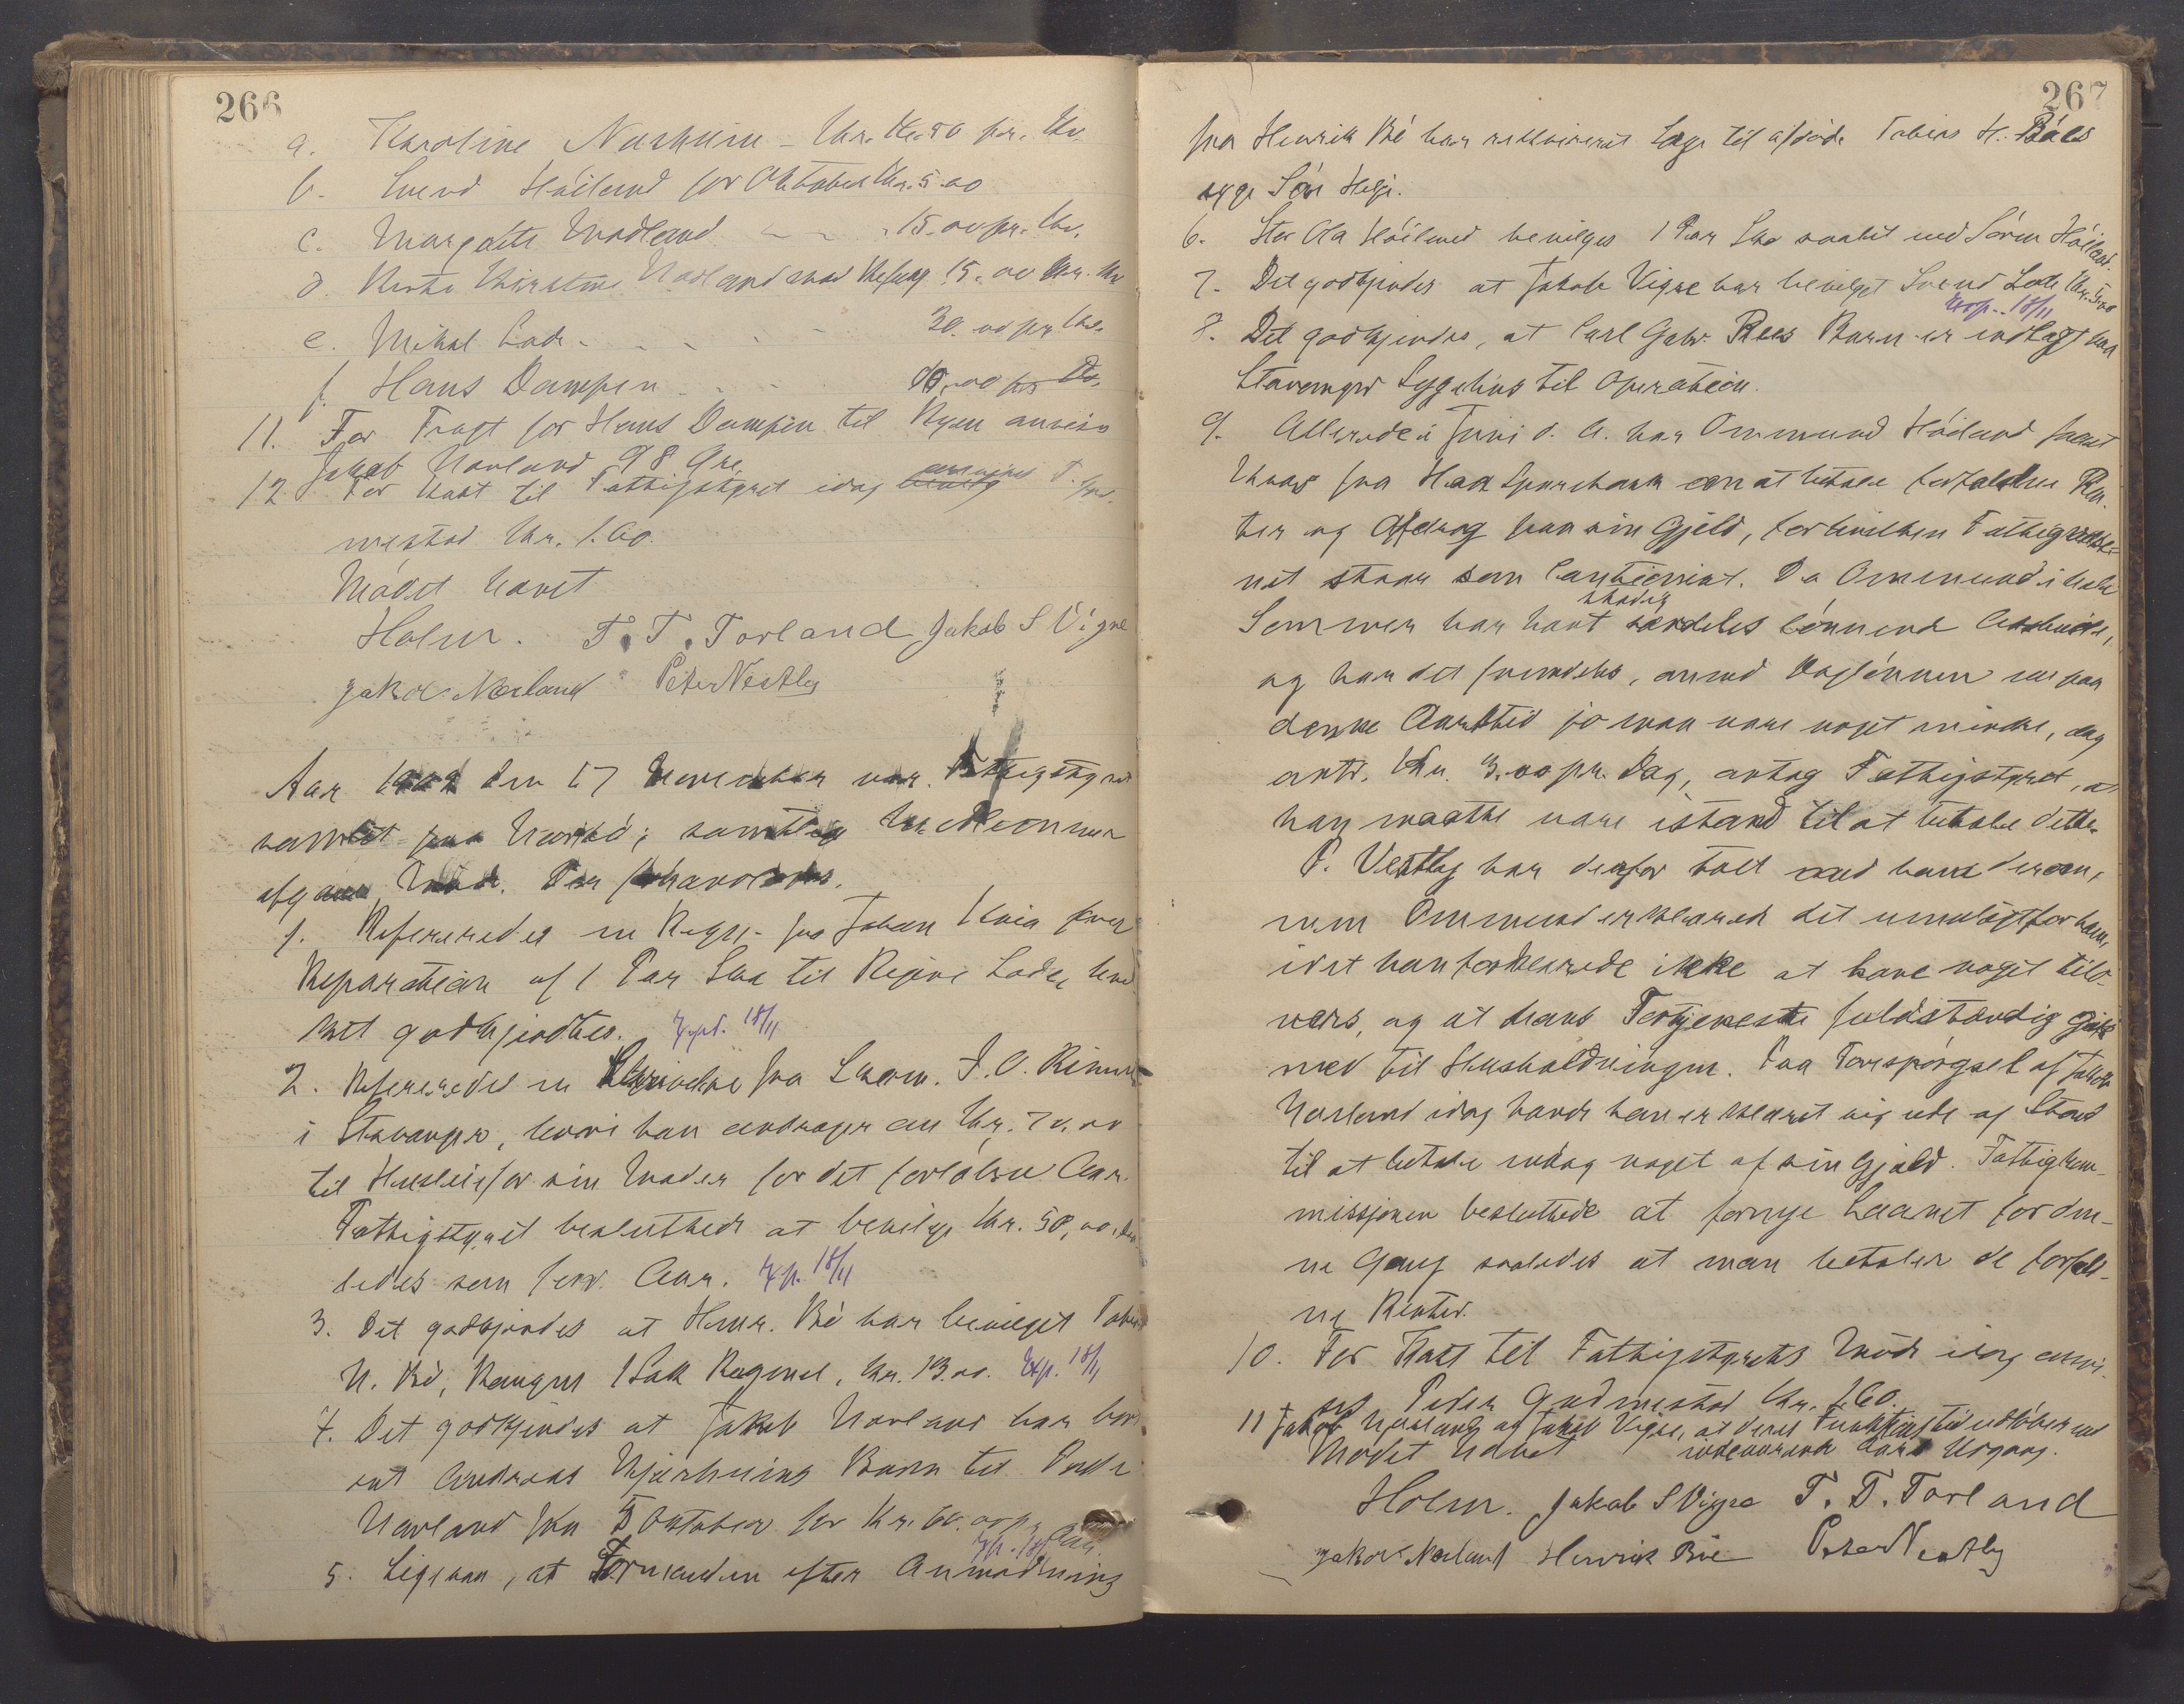 266
a. Karoline Narheim - Kr. 50 pr. Kv.
b. Svend Höiland for Oktober Kr. 5.00
c. Margrete Modland 15.00 pr. Kv.
d. Kirstine Narland 15.00
e. Mikal Lode 30.00 pr. Kv.
f. Hans Dampen 10,00
11. For Fragt for Hans Dampen til Byen anvises
Jakob Narland 98 Øre.
12 For Kost til Fattigstyret idag anvises P. Gud-
mestad Kr. 1.60
Mödet hævet
Holm. T. T. Torland Jakob S Vigre
Jakob Narland Peter Vestly
Aar 1902 den 17 November var Fattigstyret
samlet paa Narbö; samtlige Medlemmer
afgav Möde. Der forhandledes.
1. Refereredes en Regn. fra Johan Kvia for
Reparation af 1 Par Sko til Regine Lode, hvil-
ket godkjendtes. Exped. 18/11
2. Refereredes en Skrivelse fra Skom. J. O. Rime
i Stavanger, hvori han andrager om Kr. 70.00
til Husleie for sin Moder for det forløbne Aar.
Fattigstyret besluttede at bevilge Kr. 50,00,
ledes som forr. Aar. Exp. 18/11
3. Det godkjendes at Henr. Bö har bevilget Tobias
H. Bö, 1 Sæk Rugmel, Kr. 13.00. Exp. 18/11
4. Det godkjendes at Jakob Narland har bort-
sat Andreas Kjærheims Barn til Peder
Narland fra 5 Oktober for Kr. 60.00 pr. Aar
Exp. 18/11
5. Ligesaa, at Formanden efter Anmodning
267
fra Henrik Bö har rekvireret Læge til afdöde Tobias H. Böes
syge Sön Helge.
6. Ole Höiland bevilges 1 Par Sko saalet ved Sören Höiland.
7. Det godkjendes at Jakob Vigre har bevilget Svend Lode Kr. 5.00
Exp. 18/11
8. Det godkjendes, at Carl Gabr. Rees Barn er indlagt paa
Stavanger Sygehus til Operation.
9. Allerede i Juni d. A. har Ommund Höiland faaet
Krav fra Haa Sparebank om at betale forfaldne Ren-
ter og Afdrag paa sin Gjeld, for hvilken Fattigvæse-
net staar som Cautionist. Da Ommund i hele
Sommer har havt stadig særdeles lönnend Arbeide,
og har det fremdeles, omend Daglönnen nu paa
denne Aarstid jo maa være noget mindre, dog
antr. Kr. 3.00 pr. Dag, antog Fattigstyret, at
han maatte være istand til at betale dette.
P. Vestly har derfor talt med ham derom,
men Ommund erklærede det umuligt for ham,
idet han forklarede ikke at have noget tilo-
vers, og at hans Fortjeneste fuldstændig gik
med til Husholdningen. Paa Forspörgsel af Jakob
Narland idag havde han erklæret sig ude af Stand
til at betale endog noget af sin Gjæld. Fattigkom-
missjonen besluttede at fornye Laanet for den-
ne Gang saaledes at man betaler de forfald-
ne Renter.
10. For Kost til Fattigstyrets Möde idag anvi-
ses Peder Gudmestad Kr. 1.60.
11 Jakob Narland og Jakob Vigre, at deres Funktionstid udlöber ved
indeværende Aars Udgang.
Mödet hævet
Holm. Jakob S Vigre T. T. Torland
Jakob Narland Henrik Böe Peter Vestly